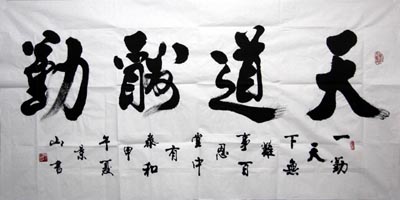 天道酬勤
一勤天下無難事百忍堂中有泰和甲午夏景山書